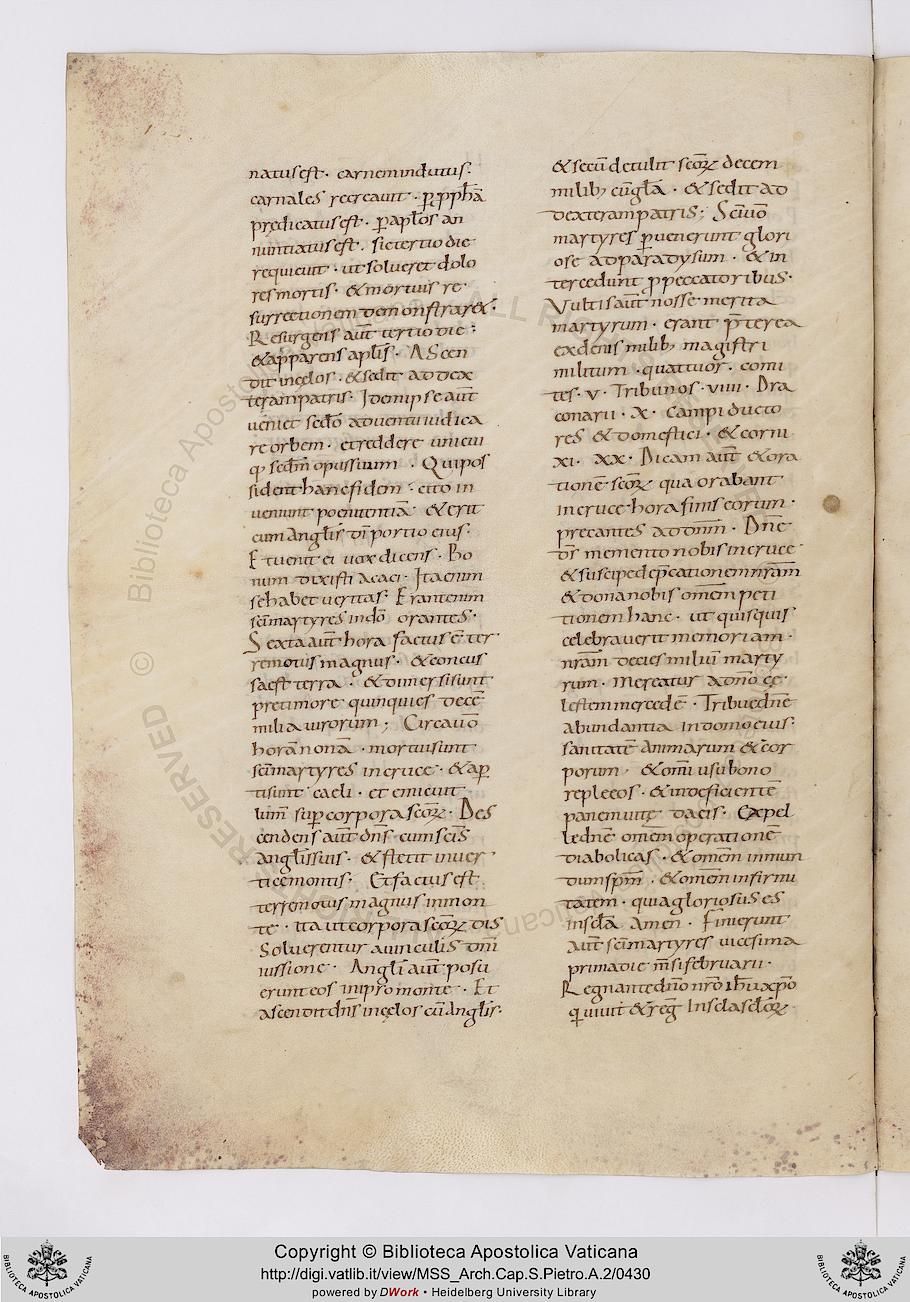 natus est · carnem indutus ·
carnales recreauit · p̱ pph̄ā
predicatus est · p̱ apl̄os an
nuntiatus est . sic tertio die
requieuit · ut solueret dolo
res mortis · & mortuis re
surrectionem demonstrar& ·
Resurgens aut̄ tertio die ·
& apparens apl̄is · Ascen
dit in cęlos . & sedit ad dex
teram patris · Idem ipse aut̄
ueniet scd̄o aduentu iudica
re orbem · et reddere unicui
q; sed̄m opus suum · Qui pos
sident hanc fidem · cito in
ueniunt poenitentiā & erit
cum angl̄is dī portio eius ·
Et uenit ei uox dicens · Bo
num dixisti acaci · Ita enim
se habet ueritas · Erant enim
sc̄i martyres in dn̄o orantes ·
Sexta aut̄ hora factus ē ter
remotus magnus · & concus
sa est terra · & diuersi sunt
pre timore quinquies decē
milia uirorum ; Circa uō
horā nonā · mortui sunt
sc̄i martyres in cruce · & ap̱
ti sunt caeli · et emicuit
lum̄ sup̱ corpora sc̄oꝝ · Des
cendens aut̄ dn̄s cum sc̄is
angl̄is suis · & stetit in uer
tice montis · Et factus est
terremotus magnus in mon
te · ita ut corpora sc̄oꝝ dis
soluerentur a uinculis dn̄i
iussione · Angl̄i aut̄ posu
erunt eos in ipro monte · Et
ascendit dn̄s in cęlos cū angl̄is ·
& secū detulit sc̄oꝝ decem
milib; eūgl̄ā · & sedit ad
dexteram patris ; Sc̄i uō
martyres p̱uenerunt glori
ose ad paradysum · & in
tercedunt p̱ peccatoribus ·
Vultis aut̄ nosse merita
martyrum · erant p̄terea
ex denis milib; magistri
militum · quattuor · comi
tes · v · Tribunos · viiii · Dra
conarii · x · campi ducto
res & domestici · & corni
xi · xx · Dicam aut̄ & ora
tionē sc̄oꝝ qua orabant
in cruce hora finis eorum ·
precantes ad dn̄m · Dn̄e
dś memento nobis in cruce
& suscipe dep̄cationem nr̄am
& dona nobis om̄em peti
tionem hanc · ut quisquis
celebrauerit memoriam ·
nr̄am decies miliū marty
rum · Mereatur a dn̄o ce
lestem mercedē · Tribue dn̄e
abundantiā in domo eius ·
sanitatē animarum & cor
porum · & om̄i usu bono
reple eos · & indeficientē
panem uitę dacis · Expel
le dn̄e om̄em operationē
diabolicas · & om̄em inmun
dum sp̄m · & om̄em infirmi
tatem · quia gloriosus es
in sc̄la amen · Finierunt
aut̄ sc̄i martyres uicesima
prima die m̄si februarii ·
Regnante dn̄o nr̄o ih̄u xp̄o
qui uiuit & reḡ In scl̄a scl̄oꝝ
Copyright © Biblioteca Apostolica Vaticana
http://digi.vatlib.it/view/MSS_Arch.Cap.S.Pietro.A.2/0430
powered by DWork • Heidelberg University Library